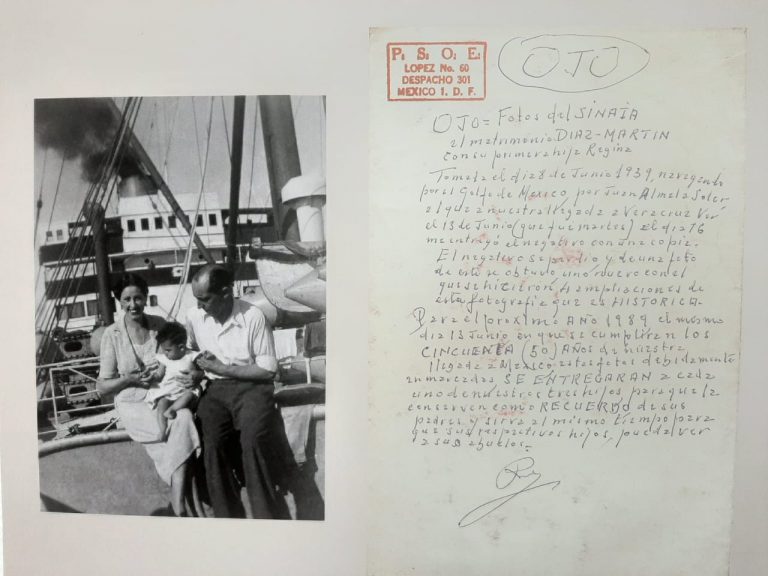 P. S. O. E.
LOPEZ No. 60
DESPACHO 301
MEXICO 1. D. F.
OJO
OJO = Fotos del SINAIA
el matrimonio DIAZ-MARTIN
con su primera hija Regina
Tomada el dia 8 de Junio 1939, navegando
por el Golfo de Mexico, por Juan Almela Soler
el que a nuestra llegada a Veracruz Ver
el 13 de Junio (que fue martes) el dia 16
me entregó el negativo con una copia.
El negativo se perdio y de una foto
de este se obtubo uno nuevo con el
que se hicieron ampliaciones de
esta fotografia que es HISTORICA-
Para el proximo AÑO 1989 el mismo
dia 13 Junio en que se cumpliran los
CINCUENTA (50) AÑOS de nuestra
llegada a Mexico estas fotos debidamente
enmarcadas SE ENTREGARAN a cada
uno de nuestros tres hijos para que la
conserven como RECUERDO de sus
padres y sirva al mismo tiempo para
que sus respectivos hijos, pueda ver
a sus abuelos.